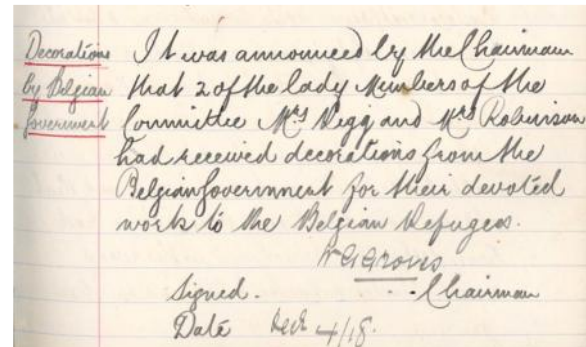 Decorations by Belgian Government
It was announced by the Chairman
that 2 of the lady Members of the
Committee Mrs Pegg and Mrs Robinson
had received decorations from the
Belgian Government for their devoted
work to the Belgian Refugees.
Groves
Signed. Chairman
Date 4/18.